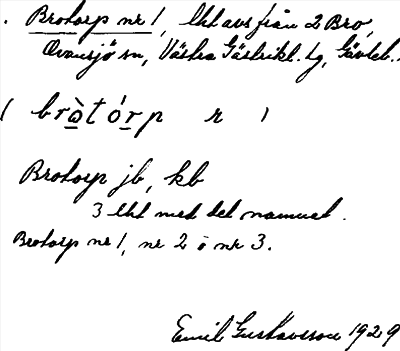 . Brotorp nr 1, lht avs från 2 Bro,
Ovansjö sn, Västra Gästrikl. tg, Gävleb.
( bròtórp n )
Brotorp jb, kb
3 lht med det namnet.
Brotorp nr 1, nr 2 o nr 3.
Emil Gustavsson 1929